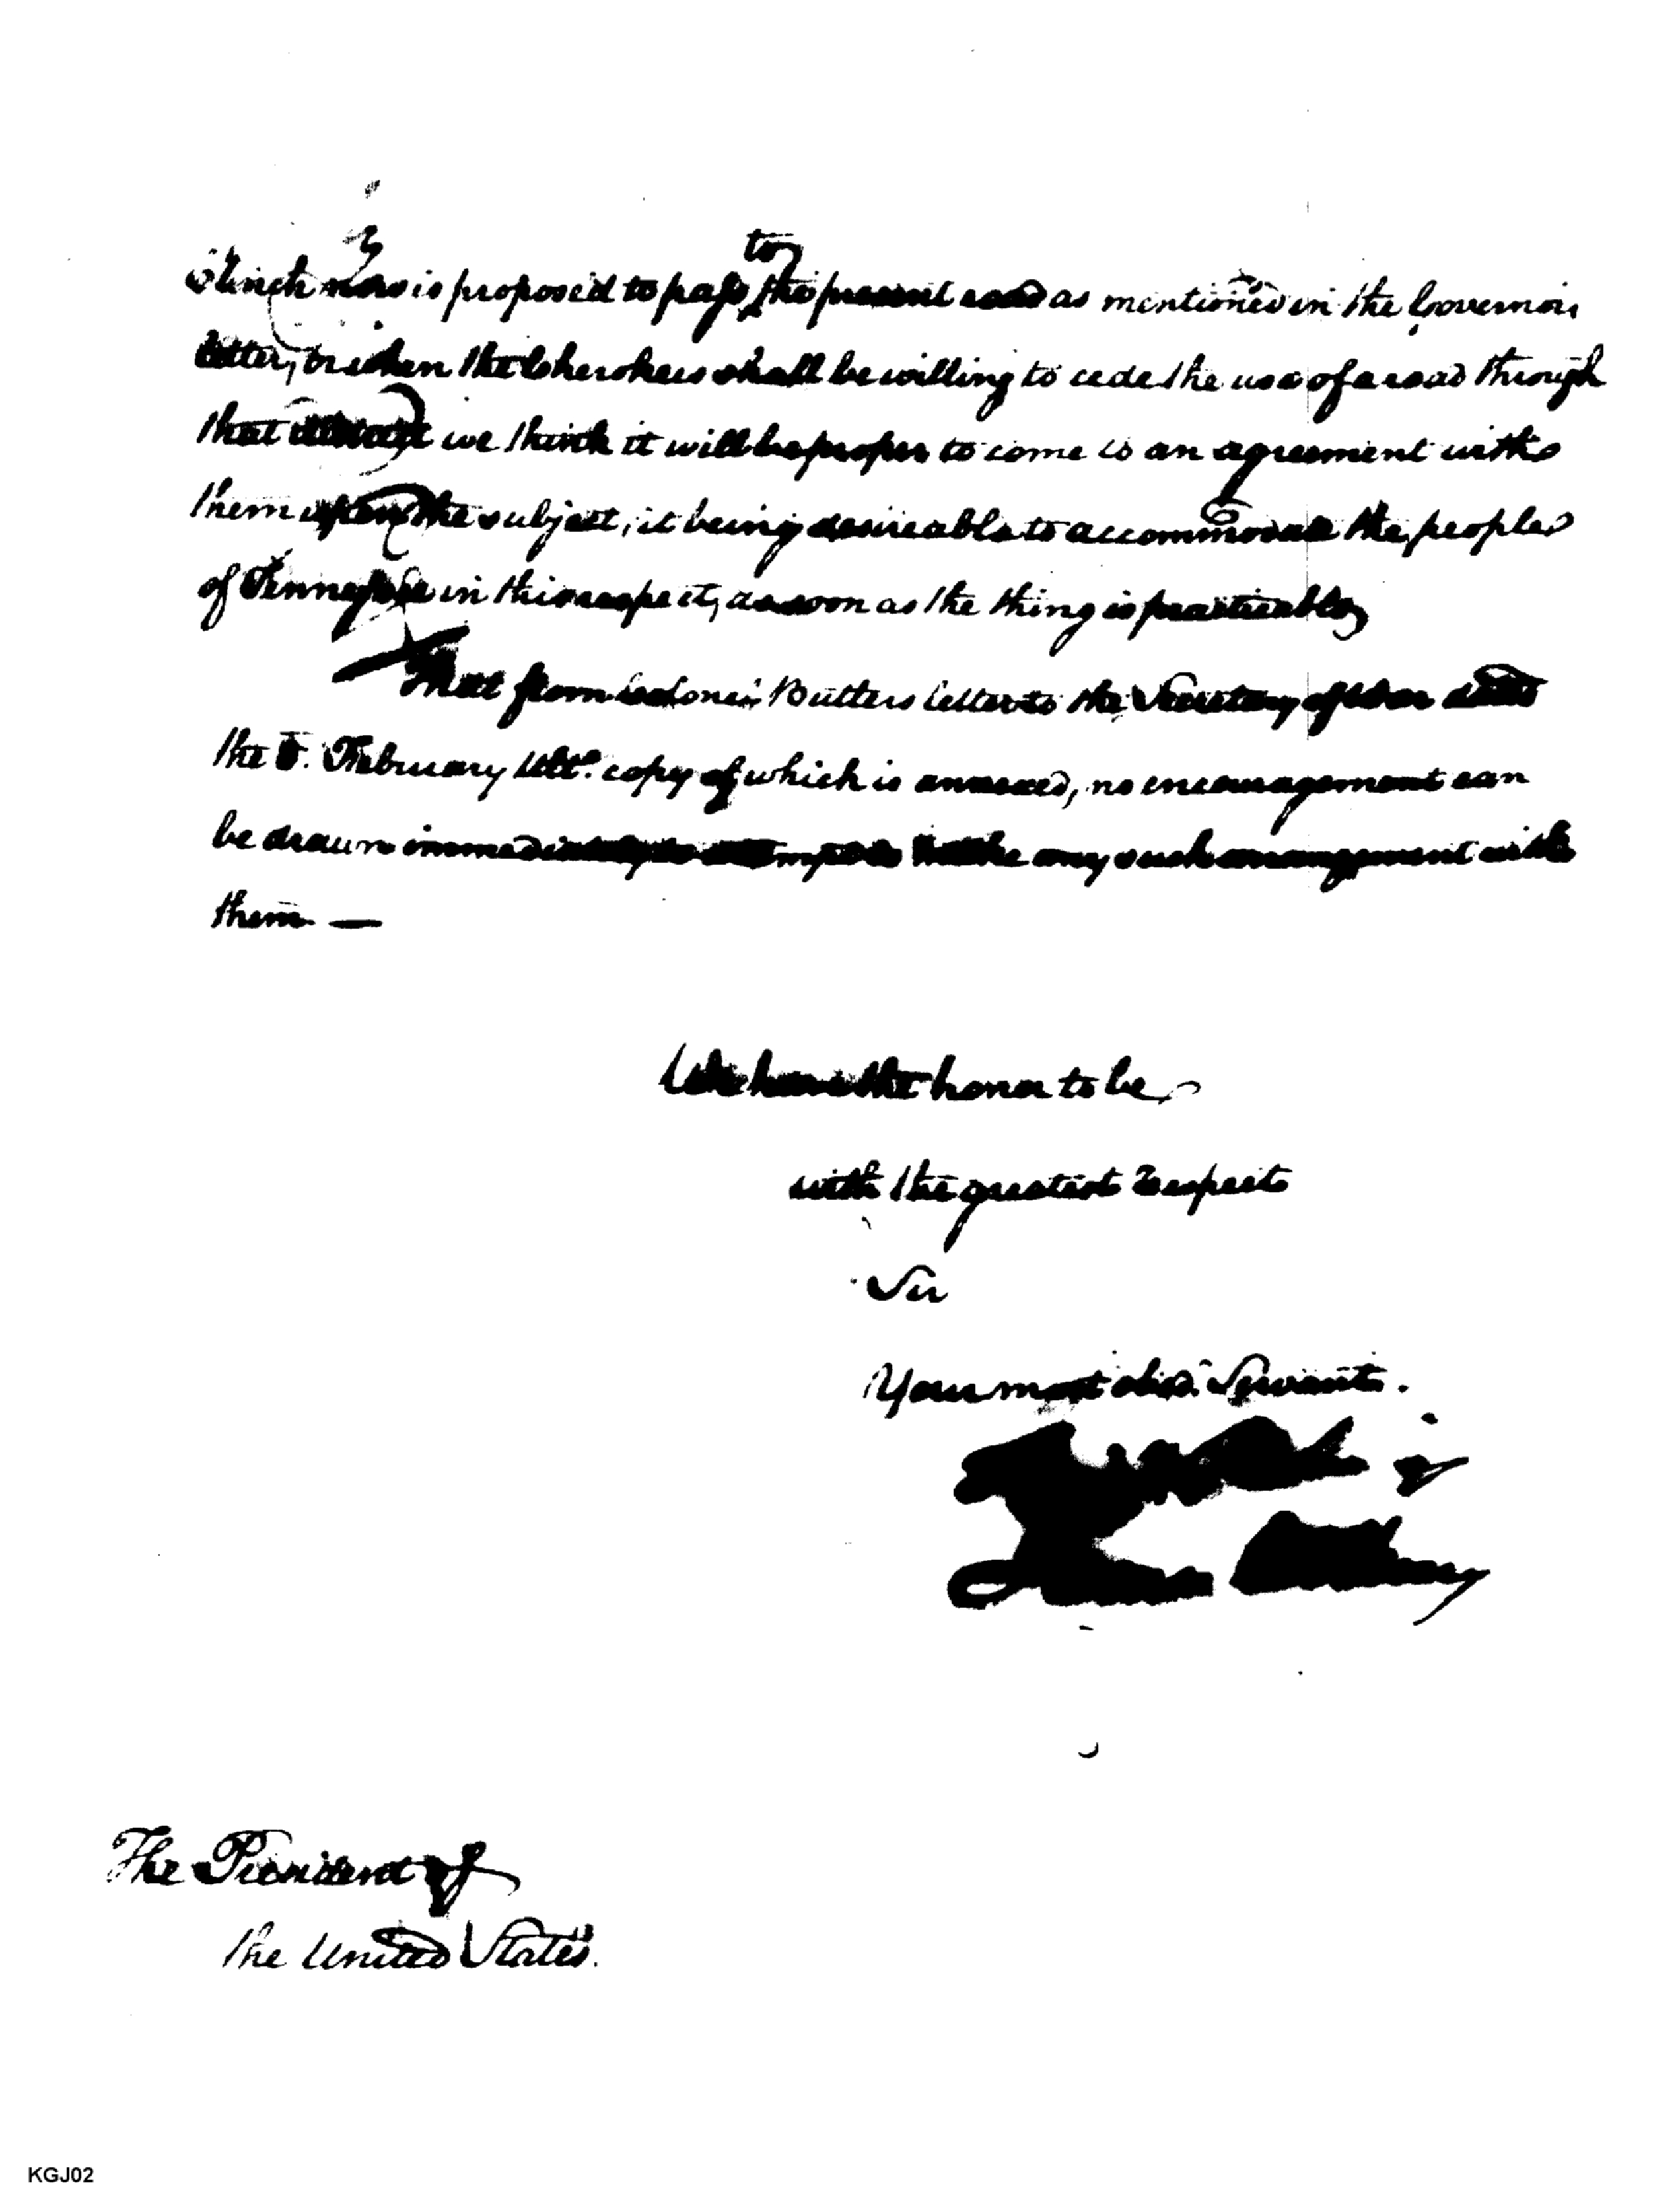 Clinch is proposed to pass to the present road as mentioned in the Governors
letter, or when the Cherokees shall be willing to cede the use of a road through
that we think it will be proper to come to an agreement with
them the subject, it being desireable to accommodate the people
of Tennessee in this respect, as soon as the thing is practicable
That from Colonel Butlers letter to the Secretary of War
the 5. February Ult. copy of which is annexed, no encouragement can
be drawn immediately to any such arrangement with
them —
We have the honor to be
with the greatest respect
Sir
Your most obed. Servants.
The President of
the United States.
KGJ02